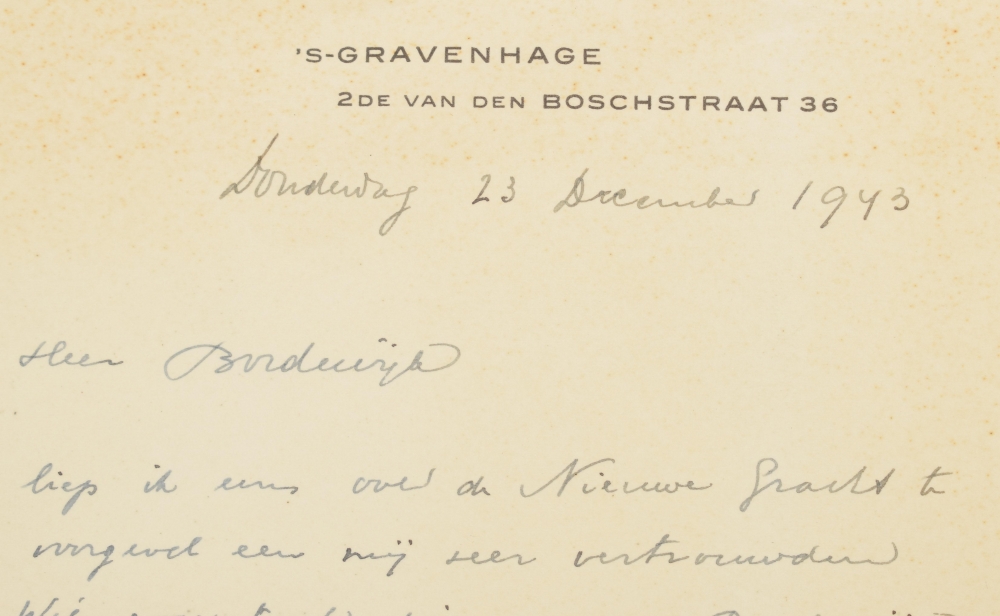 'S-GRAVENHAGE
2DE VAN DEN BOSCHSTRAAT 36
Donderdag 23 December 1943
Heer Bordewijk
liep ik eens over de Nieuwe Gracht te
een mij zeer vertrouwden